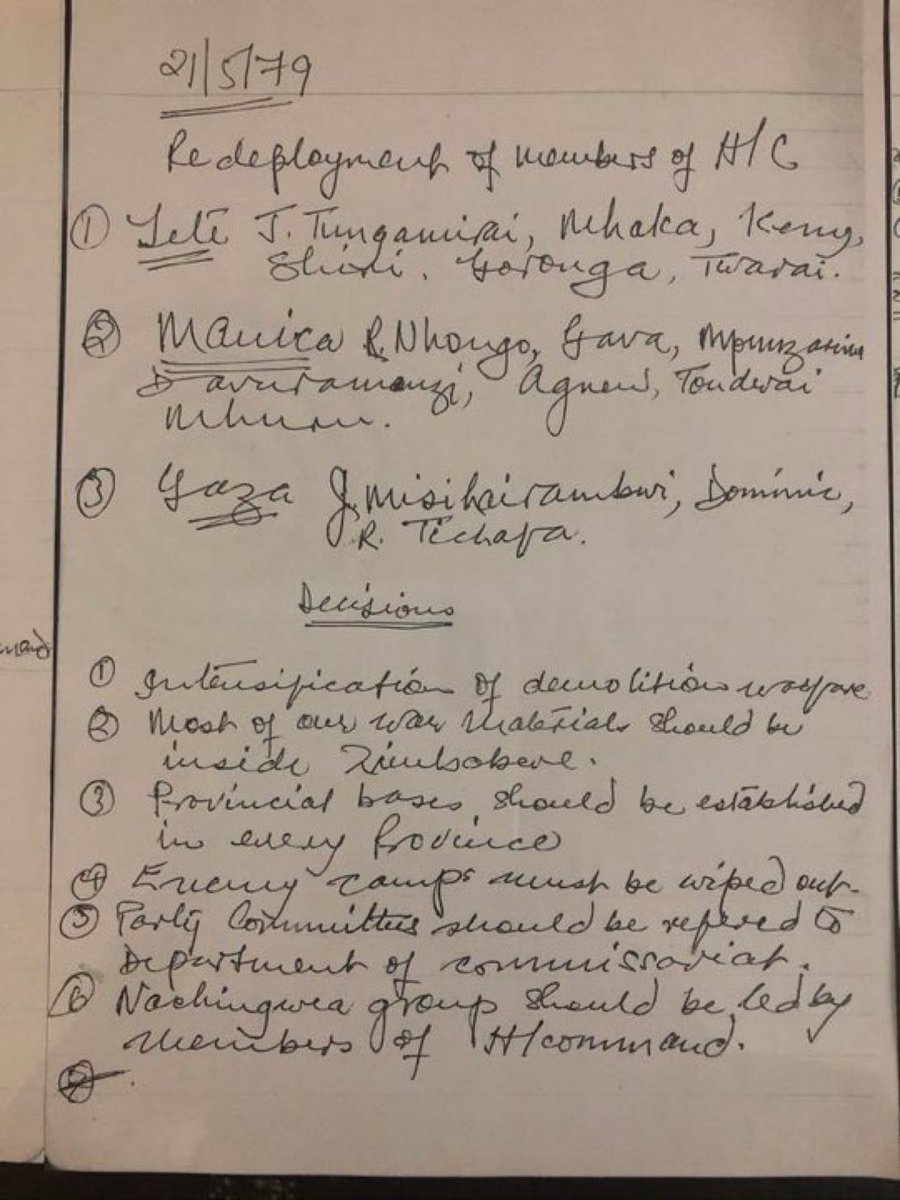 21/5/79
Redeployment of members of H/C
① Tete J. Tungamirai, Mhaka, Kenny,
Shiri, Goronga, Twarai.
② Manica R. Nhongo, Gava,
Davuramanzi, Agnew, Tonderai
③ Gaza J. Misihairambwi, Dominic,
R. Tichafa.
Decisions
① Intensification of demolition warfare
② Most of our war materials should be
inside Zimbabwe.
③ Provincial bases should be established
in every Province
④ Enemy camps must be wiped out.
⑤ Party Committees should be refered to
Department of commissariat.
⑥ Nachingwea group should be led by
members of H/command.